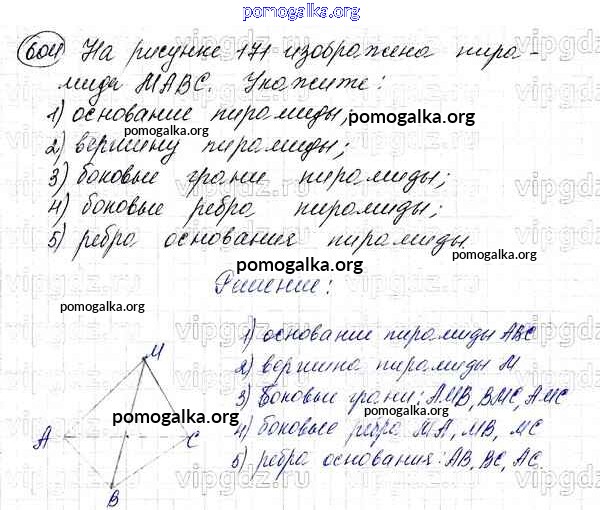 pomogalka.org
604 На рисунке 171 изображена пира-
мида МАВС. Укажите:
1) основание пирамиды;
pomogalka.org
pomogalka.org
2) вершину пирамиды;
3) боковые грани пирамиды;
4) боковые ребра пирамиды;
5) ребра основания пирамиды.
pomogalka.org
Решение:
pomogalka.org
1) основание пирамиды АВС
2) вершина пирамиды М
3) Боковые грани: АМВ, ВМС, АМС
4) боковые ребра МА, МВ, МС
5) ребра основания: АВ, ВС, АС
М
pomogalka.org
pomogalka.org
А
С
В
pomogalka.org
vipgdz.ru